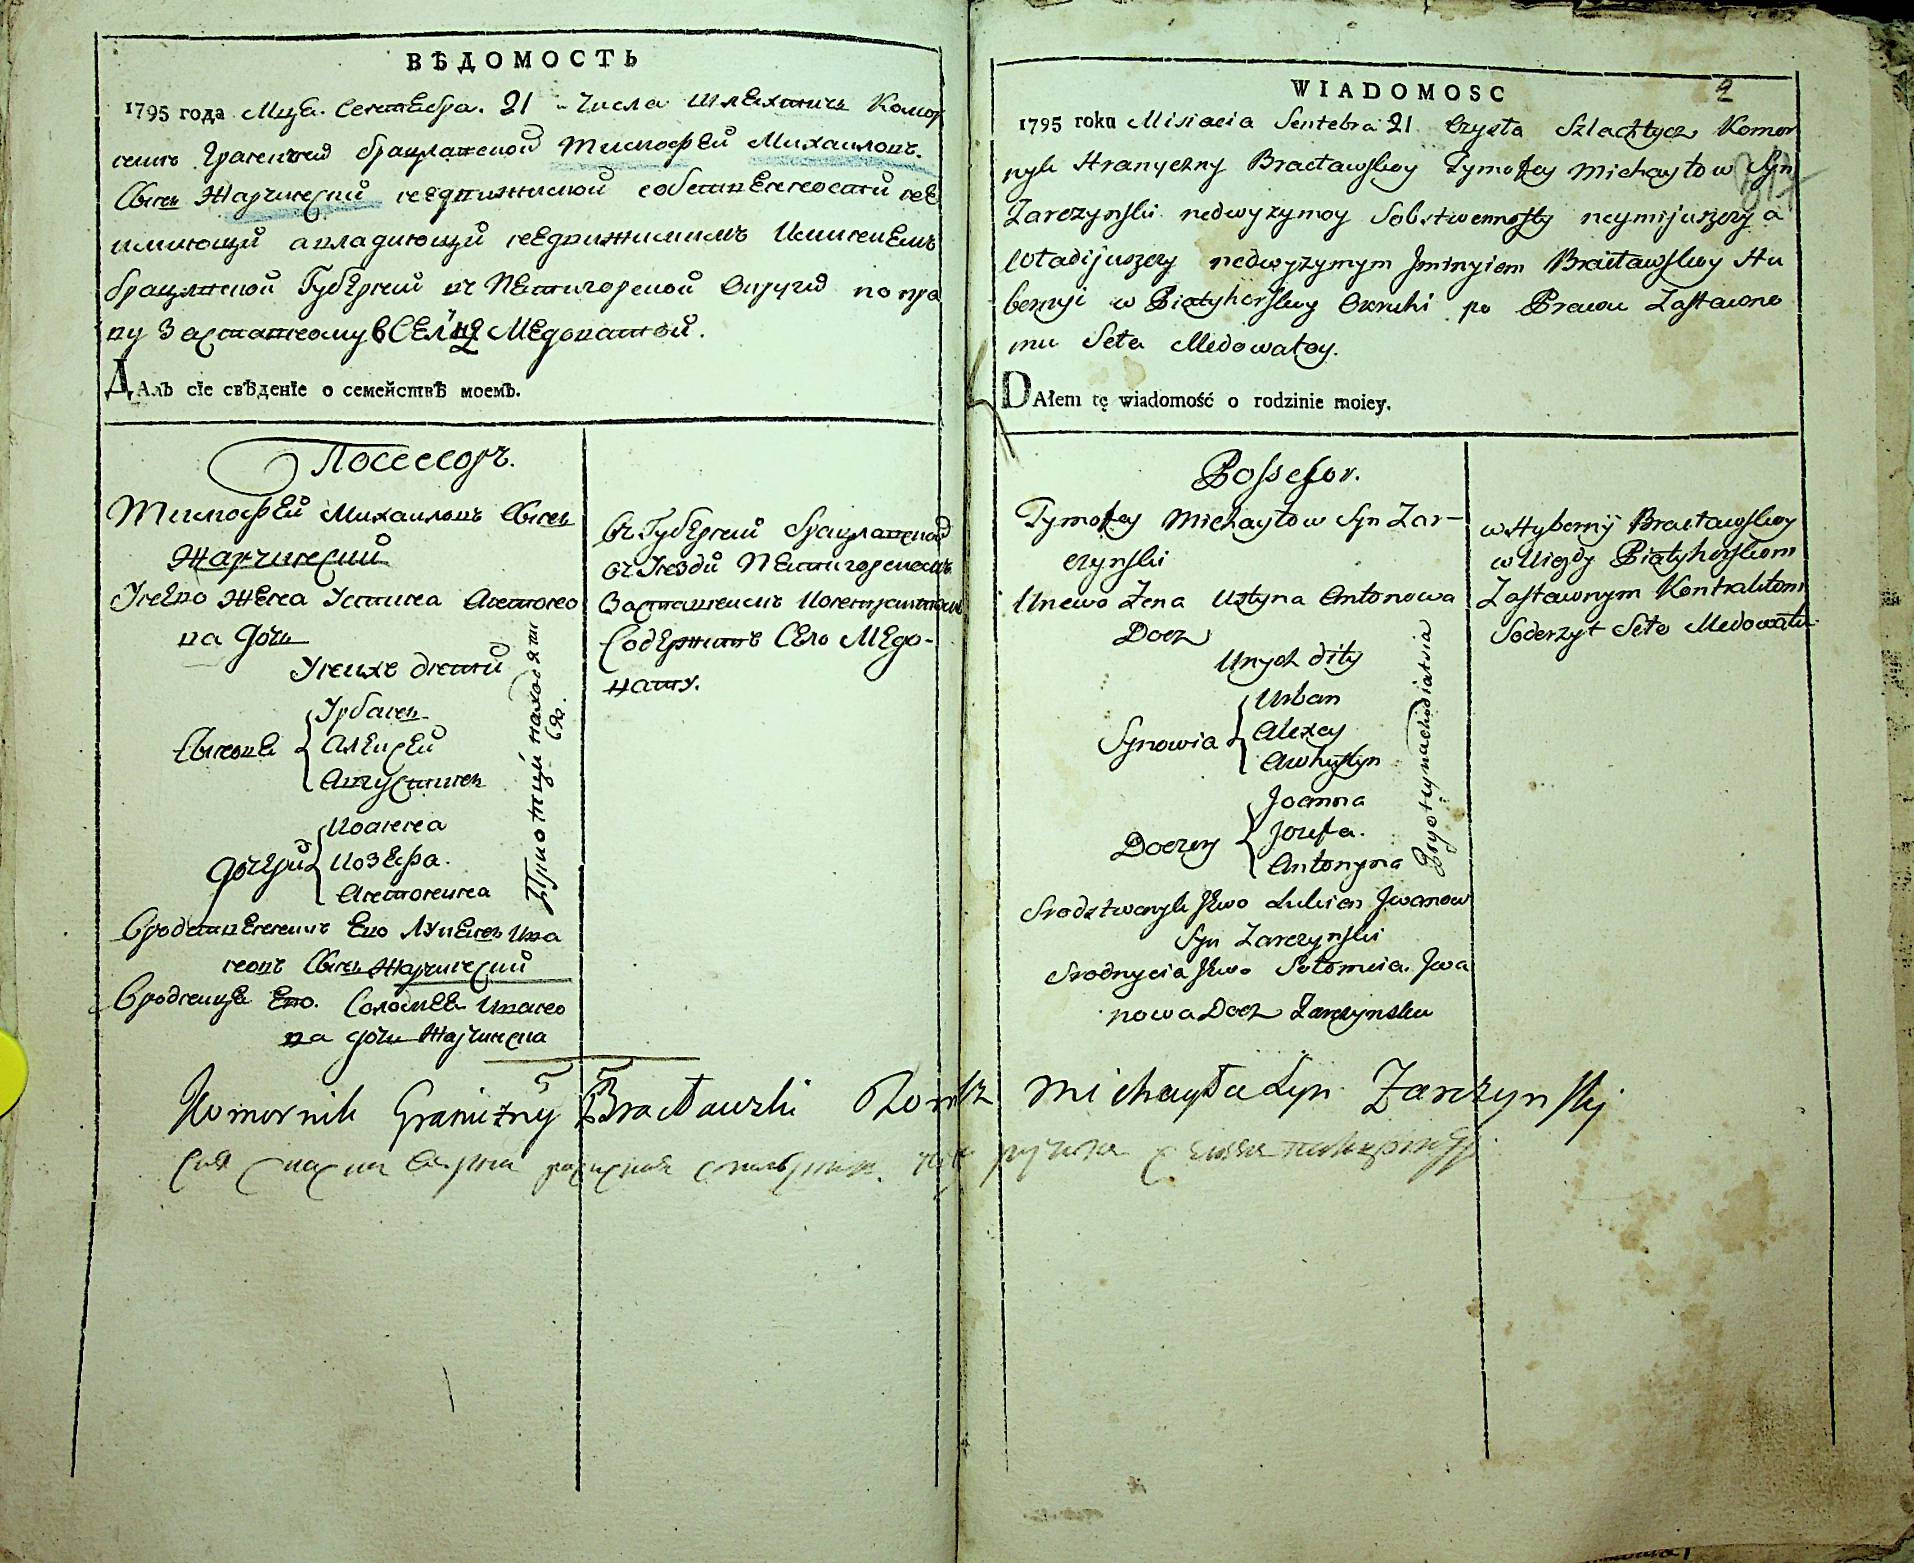 ВѢДОМОСТЬ
1795 года Мца. Сентебра. 21 - Числа Шлехтичь Комор
никъ Граничний брацлавской Тимофей Михаиловъ.
Сынъ Жарчинский недвижимой собственности не
имиющий авладиющий недвижимимъ Именіемъ
брацлавской Губерний въ Пятигорской Округи по пра
ву Заставному в Селѣ Медоватой.
ДАлъ сїе свѣденїе о семействѣ моемъ.
Посесоръ.
Тимофей Михаиловъ Сынъ
Жарчинский
Унево жена Устина Антоно
ва дочь
Унихъ дити
Сынове
Урбанъ
Алексей
Августинъ
дочери
Иоанна
Иозефа.
Антонина
При отцу находяти
ся.
Сродственникъ Ево Лукенъ Ива
новъ Сынъ Жарчинский
Сродница Ево. Соломея Ивано
ва дочь Жарчинска
Въ Губерний брацлавской
въ Уезди Пятигорскомъ
Заставнимъ Контрактомъ
Содержитъ Село Медо-
вату.
Komornik Graniczny Bracławski Tomsz Michayła Syn Zarczynskj
2
WIADOMOSC
1795 roku Misiacia Sentebra 21 Czysła Szlachtycz Komor
nyk Hranyczny Bracławskoy Tymofey Michayłow Syn
Zarczynski nedwyzymoy Sobstwennosty neymijuszczy a
władijuszczy nedwyzymym Jminyiem Bracławskoy Hu
bernyi w Piatyhorskoy Okruhi po Prawu Zastawno
mu Seła Medowatoy.
DAłem tę wiadomość o rodzinie moiey.
Possesor.
Tymofey Michayłow Syn Zar-
czynski
Unewo Zena Ustyna Antonowa
Docz
Unych dity
Synowia
Urban
Alexey
Awhustyn
Doczery
Joanna
Jozefa.
Antonyna
Pry otcy nachodiatsia
Srodztwenyk Jewo Lukian Jwanow
Syn Zarczynski
Srodnycia Jewo Sołomia Jwa
nowa Docz Zarczynska
w Hybernij Bracławskoy
w Uiezdy Piatyhorskom
Zastawnym Kontraktom
Soderzyt Seło Medowatu